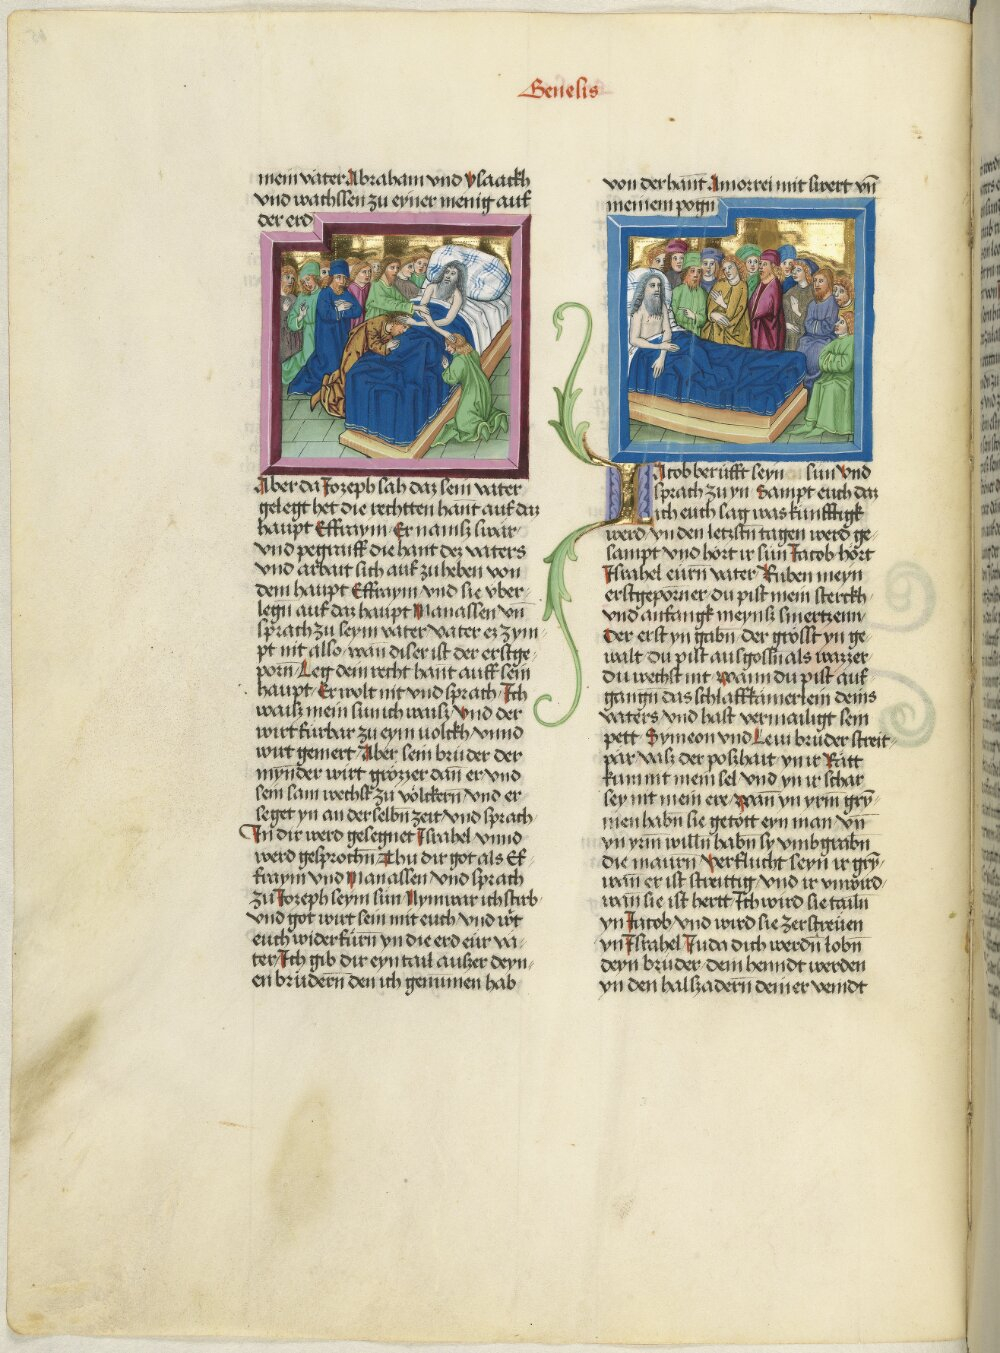 Genesis
mein vater Abraham vnd ysaackh
vnd wachssen zu eyner menig auf
der erd
Aber da Jozeph sah daz sein vater
gelegt het die rechtten hant auf daz
haupt Effraym Er namsz swar
vnd pegraiff die hant dez vaters
vnd arbait sich auf zu heben von
dem haupt Effraym vnd sie vber-
legn auf daz haupt Manassen vn̄
sprach zu seym vater vater ez zym-
pt nit allso wan diser ist der erstge-
porn Leg dein recht hant auff sein
haupt Er wolt nit vnd sprach Ich
waisz mein sun ich waisz vnd der
wirt furbar zu eym volckh vnnd
wirt gemert Aber sein bruder der
mynder wirt grozzer dan̄ er vnd
sein sam wechst zu völckern vnd er
seget yn an der selbn̄ zeit vnd sprach
In dir werd gesegnet Israhel vnnd
werd gesprochn̄ Thu dir got als Ef-
fraym vnd Manassen vnd sprach
zu Joseph seym sun Nym war ich stirb
vnd got wirt sein mit euch vnd wirt
euch wider fürn̄ yn die erd eür va-
ter Ich gib dir eyn tail auszer deyn-
en brüdern̄ den ich genumen hab
von der hant Amorrei mit swert vn̄
meinem pogn̄
Jacob berüfft seyn sun vnd
sprach zu yn Sampt euch daz
ich euch sag was kunfftigk
werd yn den letzstn̄ tagen werd ge-
sampt vnd hört ir sün Jacob hört
Israhel eurn̄ vater Ruben meyn
erstgeporner du pist mein sterckh
vnd anfangk meynsz smertzenn
Der erst yn gabn̄ der grösst yn ge-
walt du pist ausgossn̄ als wazzer
du wechst nit wann du pist auf
gangn̄ das schlaffkamerlein deins
vaters vnd hast vermailigt sein
pett Symeon vnd Leui bruder streit-
par vasz der poszhait yn ir Rätt
kummt mein sel vnd yn ir schar
sey nit mein ere wan̄ yn yrm gry̅-
men habn̄ sie getött eyn man vn̄
yn yrm willn̄ habn̄ sy vmbgrabn̄
die maurn̄ verflucht seyn ir gry̅-
wan̄ er ist streittig vnd ir vnwird
wan̄ sie ist hertt Ich wird sie tailn̄
yn Jacob vnd wird sie zerstreüen
yn Israhel Juda dich werdn̄ lobn̄
deyn brüder dein henndt werden
yn den halszadern̄ deiner veindt